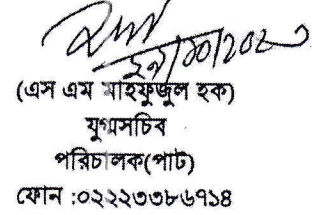 (এস এম মাহফুজুল হক)
যুগ্মসচিব
পরিচালক(পাট)
ফোন :০২২২৩৩৮৬৭১৪